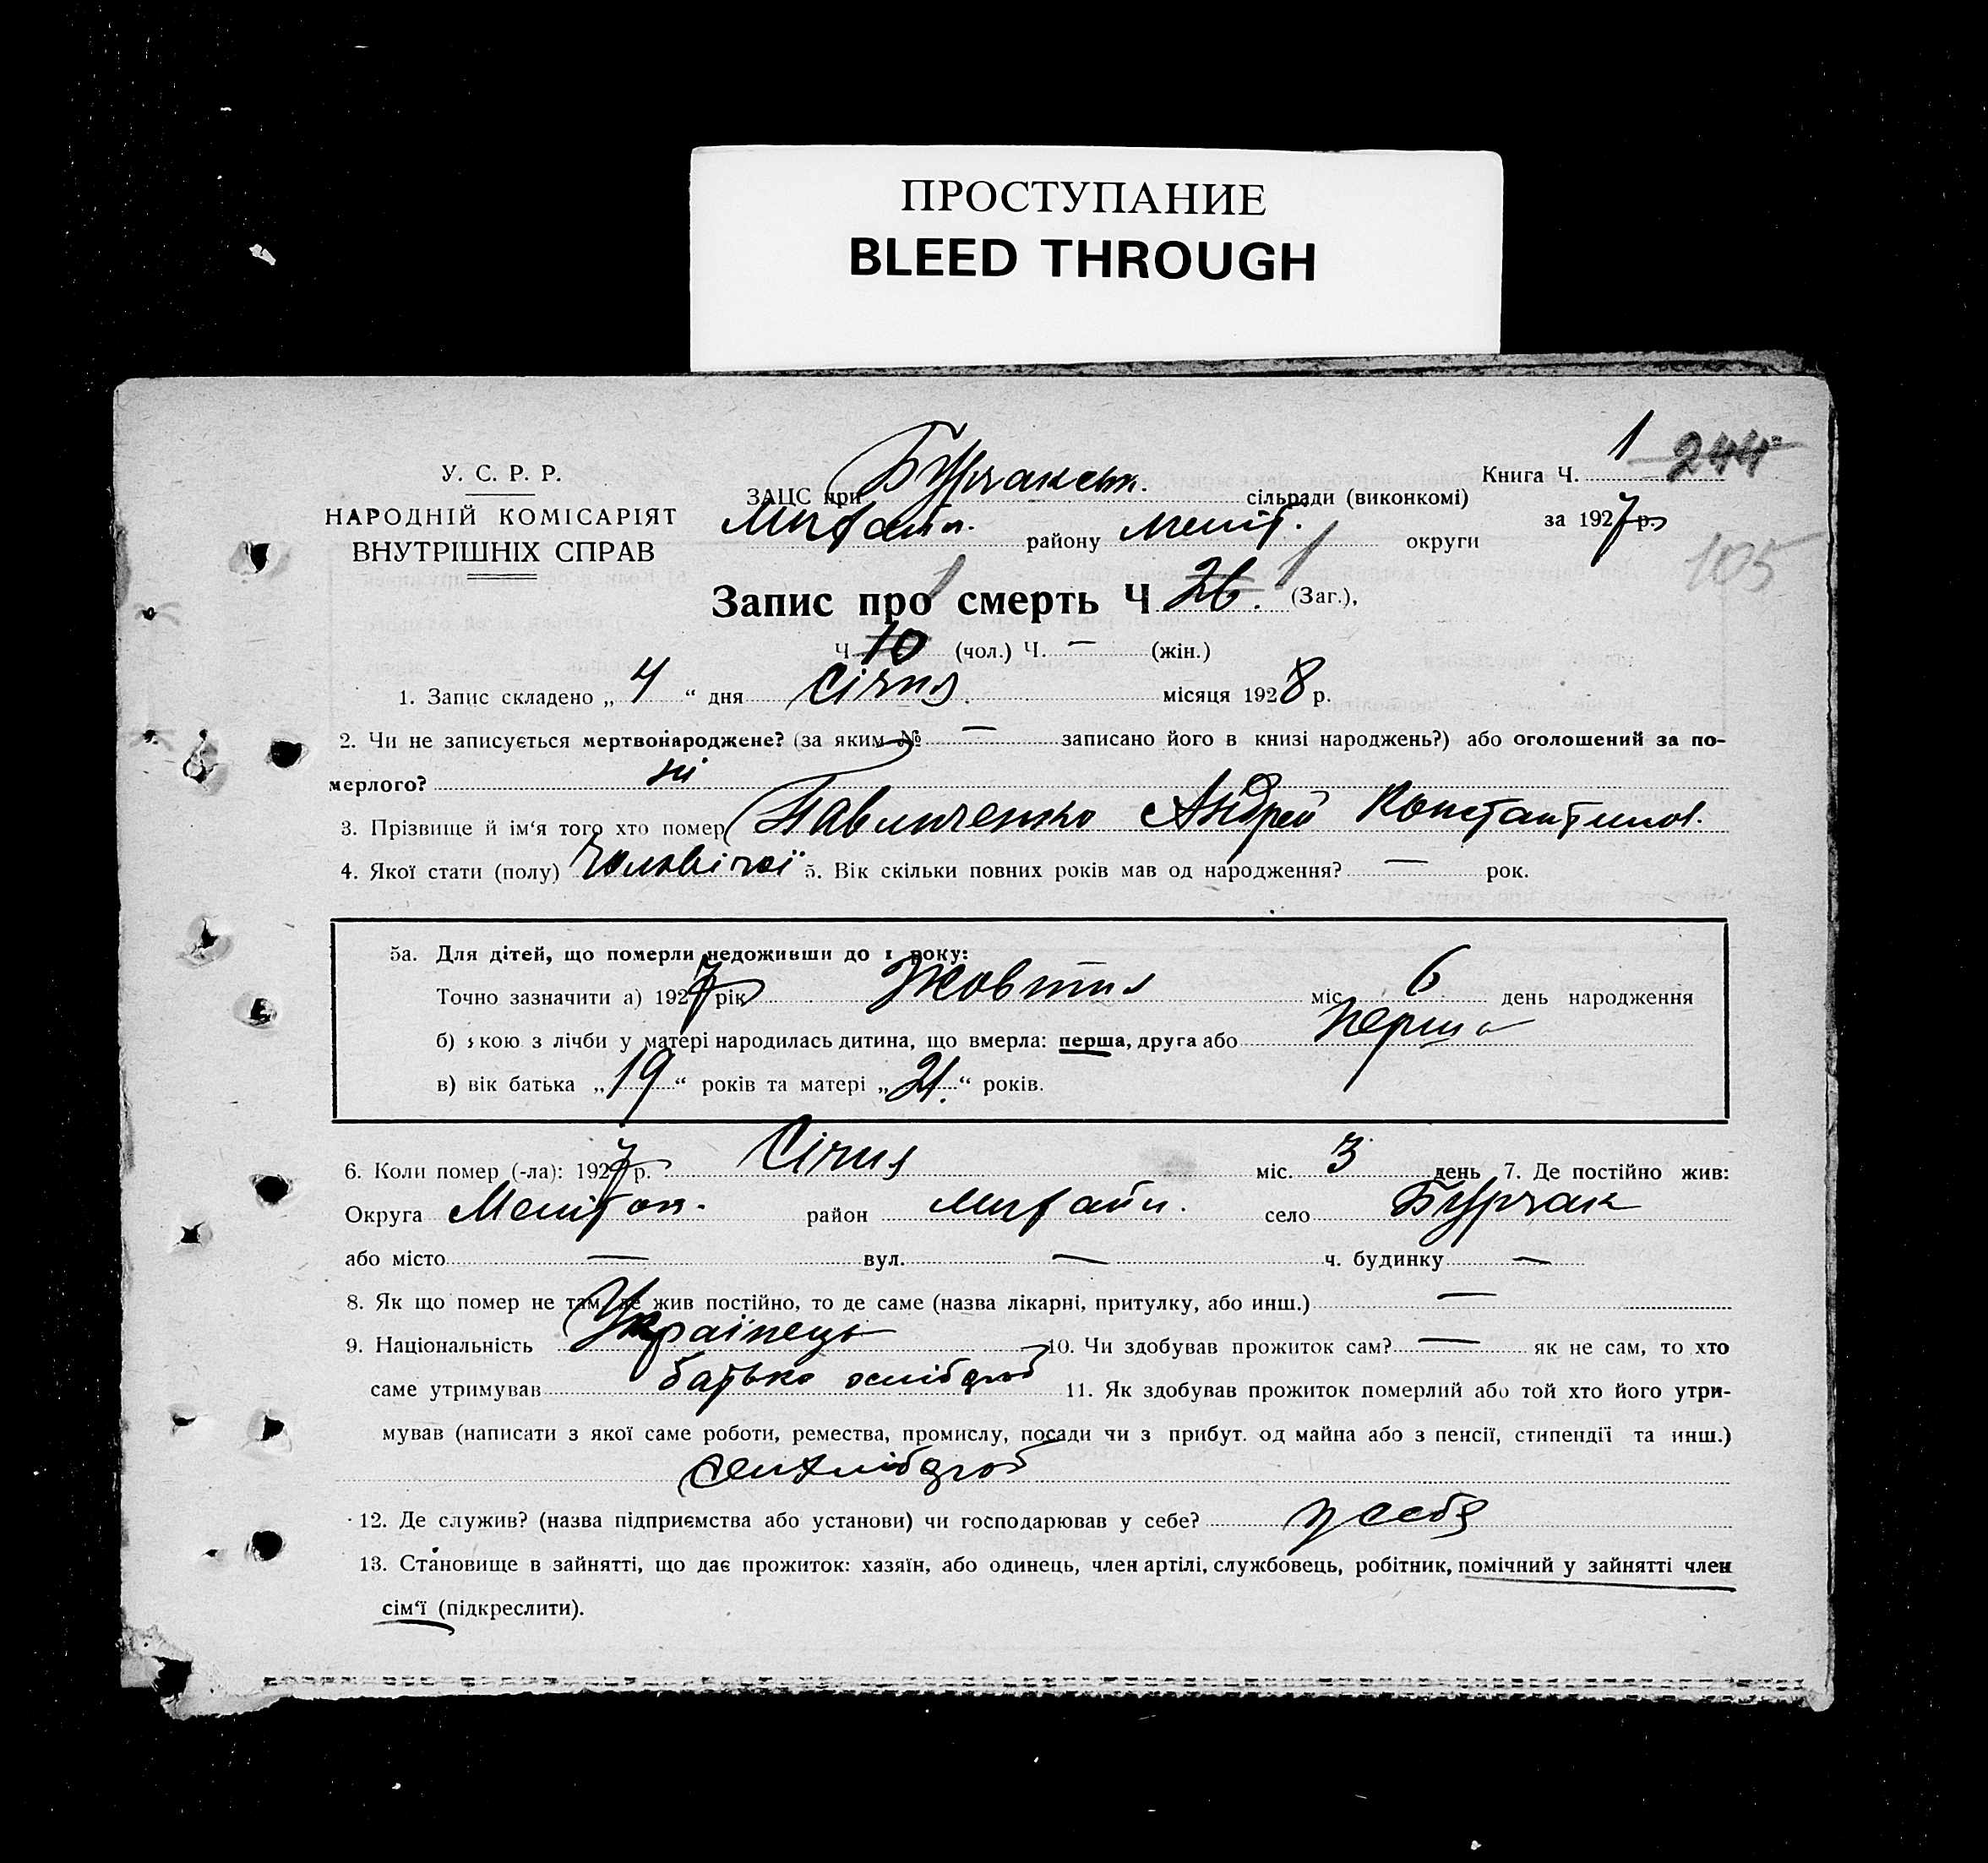 ПРОСТУПАНИЕ
BLEED THROUGH
1 244
У. С. Р. Р.
НАРОДНІЙ КОМІСАРІЯТ
ВНУТРІШНІХ СПРАВ
ЗАЦС при Бурчакськ. сільради (виконкомі) Книга Ч.
Михайл. району Меліт. округи за 1927 р.
105
Запис про смерть Ч 26. (Заг.),
Ч. 10 (чол.) Ч. — (жін.)
1. Запис складено „ 4 “ дня Січня. місяця 1928 р.
2. Чи не записується мертвонароджене? (за яким № — записано його в книзі народжень?) або оголошений за по-
мерлого? ні
3. Прізвище й ім‘я того хто помер Павличенко Андрей Константинов.
4. Якої стати (полу) Чоловічої 5. Вік скільки повних років мав од народження? — рок.
5а. Для дітей, що померли недоживши до 1 року:
Точно зазначити а) 1927 рік Жовтня міс. 6 день народження
б) якою з лічби у матері народилась дитина, що вмерла: перша, друга або перша
в) вік батька „ 19 “ років та матері „ 21. “ років.
6. Коли помер (-ла): 1927 р. Січня міс. 3 день 7. Де постійно жив:
Округа Мелітоп. район Михайл. село Бурчак
або місто — вул. — ч. будинку —
8. Як що помер не там, де жив постійно, то де саме (назва лікарні, притулку, або инш.) —
9. Національність Українець 10. Чи здобував прожиток сам? — як не сам, то хто
саме утримував батько хлібороб 11. Як здобував прожиток померлий або той хто його утри-
мував (написати з якої саме роботи, ремества, промислу, посади чи з прибут. од майна або з пенсії, стипендії та инш.)
12. Де служив? (назва підприємства або установи) чи господарював у себе? у себе
13. Становище в зайнятті, що дає прожиток: хазяїн, або одинець, член артілі, службовець, робітник, помічний у зайнятті член
сім‘ї (підкреслити).